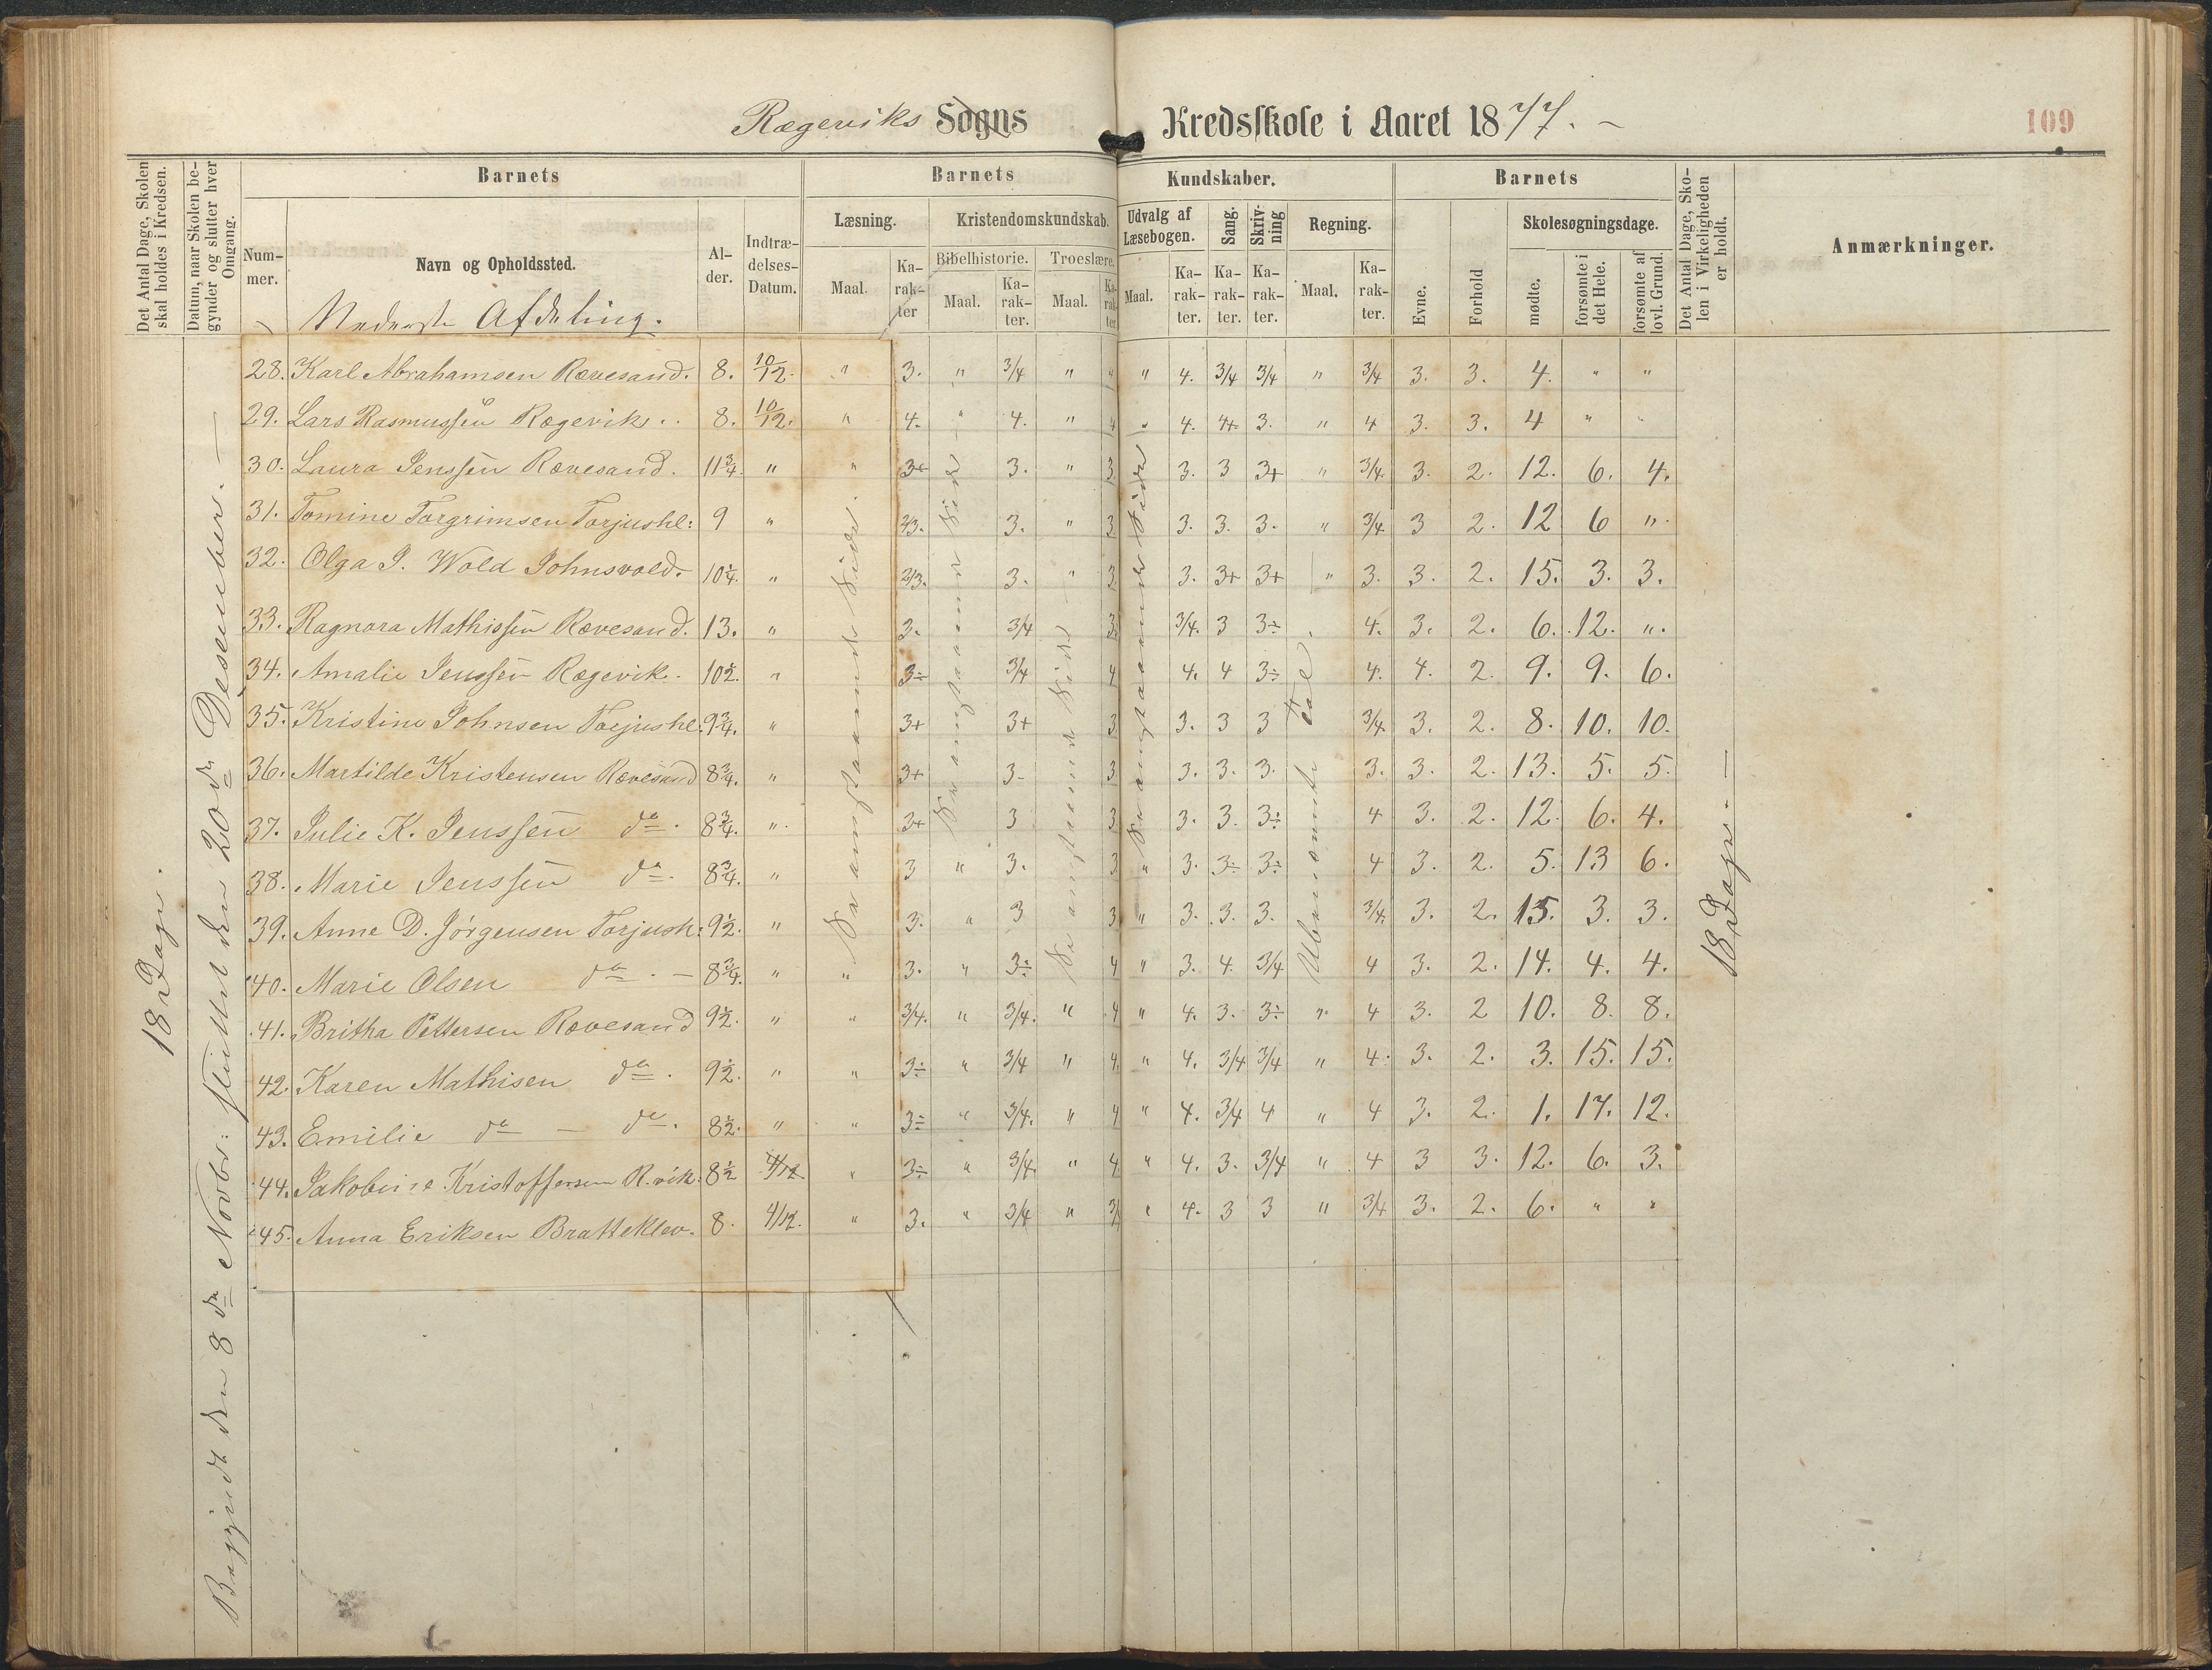 Rægeviks Sogns Kredsskole i Aaret 1877. –
109
Det Antal Dage, Skolen skal holdes i Kredsen.
Datum, naar Skolen begynder og slutter hver Omgang.
Barnets
Barnets Kundskaber.
Barnets
Det Antal Dage, Skolen i Virkeligheden er holdt.
Anmærkninger.
Nummer.
Navn og Opholdssted.
Alder.
Indtrædelses-Datum.
Læsning.
Kristendomskundskab.
Udvalg af Læsebogen.
Sang.
Skrivning
Regning.
Evne.
Forhold
Skolesøgningsdage.
Bibelhistorie.
Troeslære.
Maal.
Karakter
Maal.
Karakter.
Maal.
Karakter.
Maal.
Karakter.
Karakter.
Karakter.
Maal.
Karakter.
mødte.
forsømte i det Hele.
forsømte af lovl. Grund.
Nederste Afdeling.
18 Dage.
Begyndt den 8de Novbr: sluttet den 20de Desember. —
28. Karl Abrahamsen Rævesand. 8. 10/12. " 3. " 3/4 " " " 4. 3/4 3/4 " 3/4 3. 3. 4. " "
29. Lars Rasmussen Rægevik. . 8. 10/12. " 4. " 4. " 4 " 4. 4+ 3. " 4 3. 3. 4 " "
30. Laura Jenssen Rævesand. 11 3/4. " " 3+ 3. " 3 3. 3 3+ " 3/4 3. 2. 12. 6. 4.
31. Tomine Torgrimsen Torjushl: 9 " 2/3. 3. " 3 3. 3. 3. " 3/4 3 2. 12 6 ".
32. Olga J. Wold Johnsvold. 10 1/4. " 2/3. 3. " 3 3. 3+ 3+ " 3. 3. 2. 15. 3. 3.
33. Ragnara Mathissen Rævesand. 13. " 3. 3/4 3. 3/4. 3 3÷ . 4. 3. 2. 6. 12. ".
34. Amalie Jenssen Rægevik. 10 1/2. " 3÷ 3/4 4 4. 4 3÷ 4. 4. 2. 9. 9. 6.
35. Kristine Johnsen Torjushl. 9 3/4. " 3+ 3+ 3 3. 3 3 3/4 3. 2. 8. 10. 10.
36. Martilde Kristensen Rævesand 8 3/4. " 3+ 3- 3 3. 3. 3. 3. 3. 2. 13. 5. 5.
37. Julie K. Jenssen do. 8 3/4. ". 3+ 3 3 3. 3. 3÷ 4 3. 2. 12. 6. 4.
38. Marie Jenssen do. 8 3/4. " 3 " 3. 3 " 3. 3÷ 3÷ 4 3. 2. 5. 13 6.
39. Anne D. Jörgensen Torjush: 9 1/2. " 3. " 3 3 " 3. 3. 3. 3/4. 3. 2. 15. 3. 3.
40. Marie Olsen do. – 8 3/4. " " 3. " 3÷ 4 " 3. 4. 3/4 4 3. 2. 14. 4. 4.
41. Britha Pettersen Rævesand 9 1/2. " " 3/4. " 3/4. " 4 " 4. 3. 3÷ ". 4 3. 2 10. 8. 8.
42. Karen Mathisen do. 9 1/2. " " 3÷ " 3/4 " 4. " 4. 3/4 3/4 " 4. 3. 2. 3. 15. 15.
43. Emilie do – do. 8 1/2. " " 3÷ " 3/4. " 4 " 4. 3/4 4 " 4 3. 2. 1. 17. 12.
44. Jakobine Kristoffersen R.vik. 8 1/2 4/12 " 3÷ " 3/4. " 4 " 4. 3. 3/4 " 4 3 3. 12. 6. 3.
45. Anna Eriksen Bratteklev. 8. 4/12. " 3. " 3/4 " 3/ " 4. 3 3 " 3/4 3. 2. 6. " "
Se angstaaende Side.
Se angstaaende Side
Se angstaaende Side
Se angstaaende Side
Ubenævnte Tal
18 Dage. —